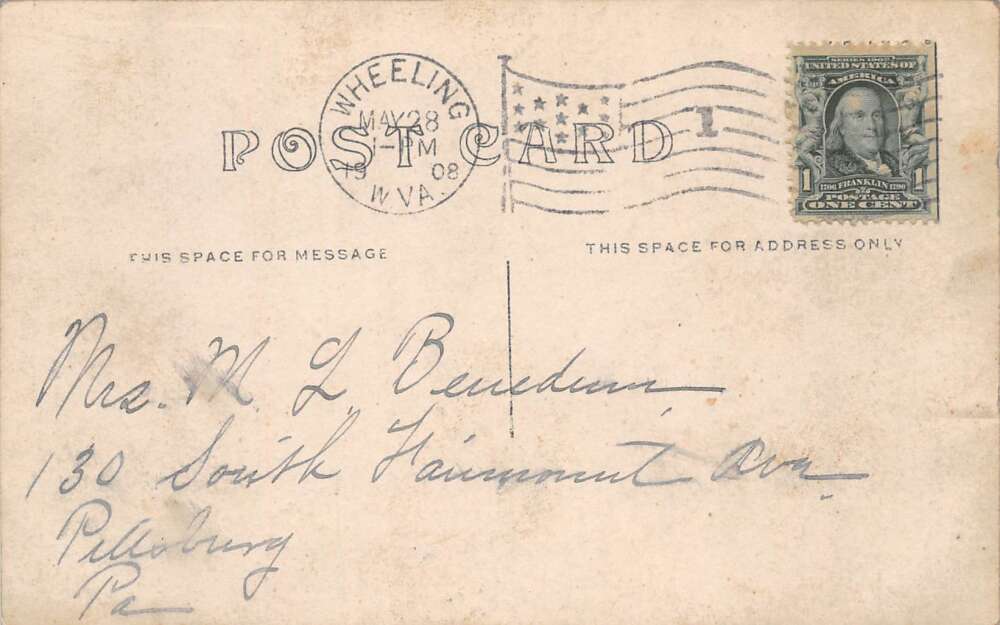 WHEELING
MAY 28
1-PM
19 08
W VA.
1
POST CARD
SERIES 1902
UNITED STATES OF
AMERICA
1 1706 FRANKLIN 1790 1
POSTAGE
ONE CENT
THIS SPACE FOR MESSAGE
THIS SPACE FOR ADDRESS ONLY
Mrs. M. L Benedum
130 South Fairmount Ave
Pittsburg
Pa